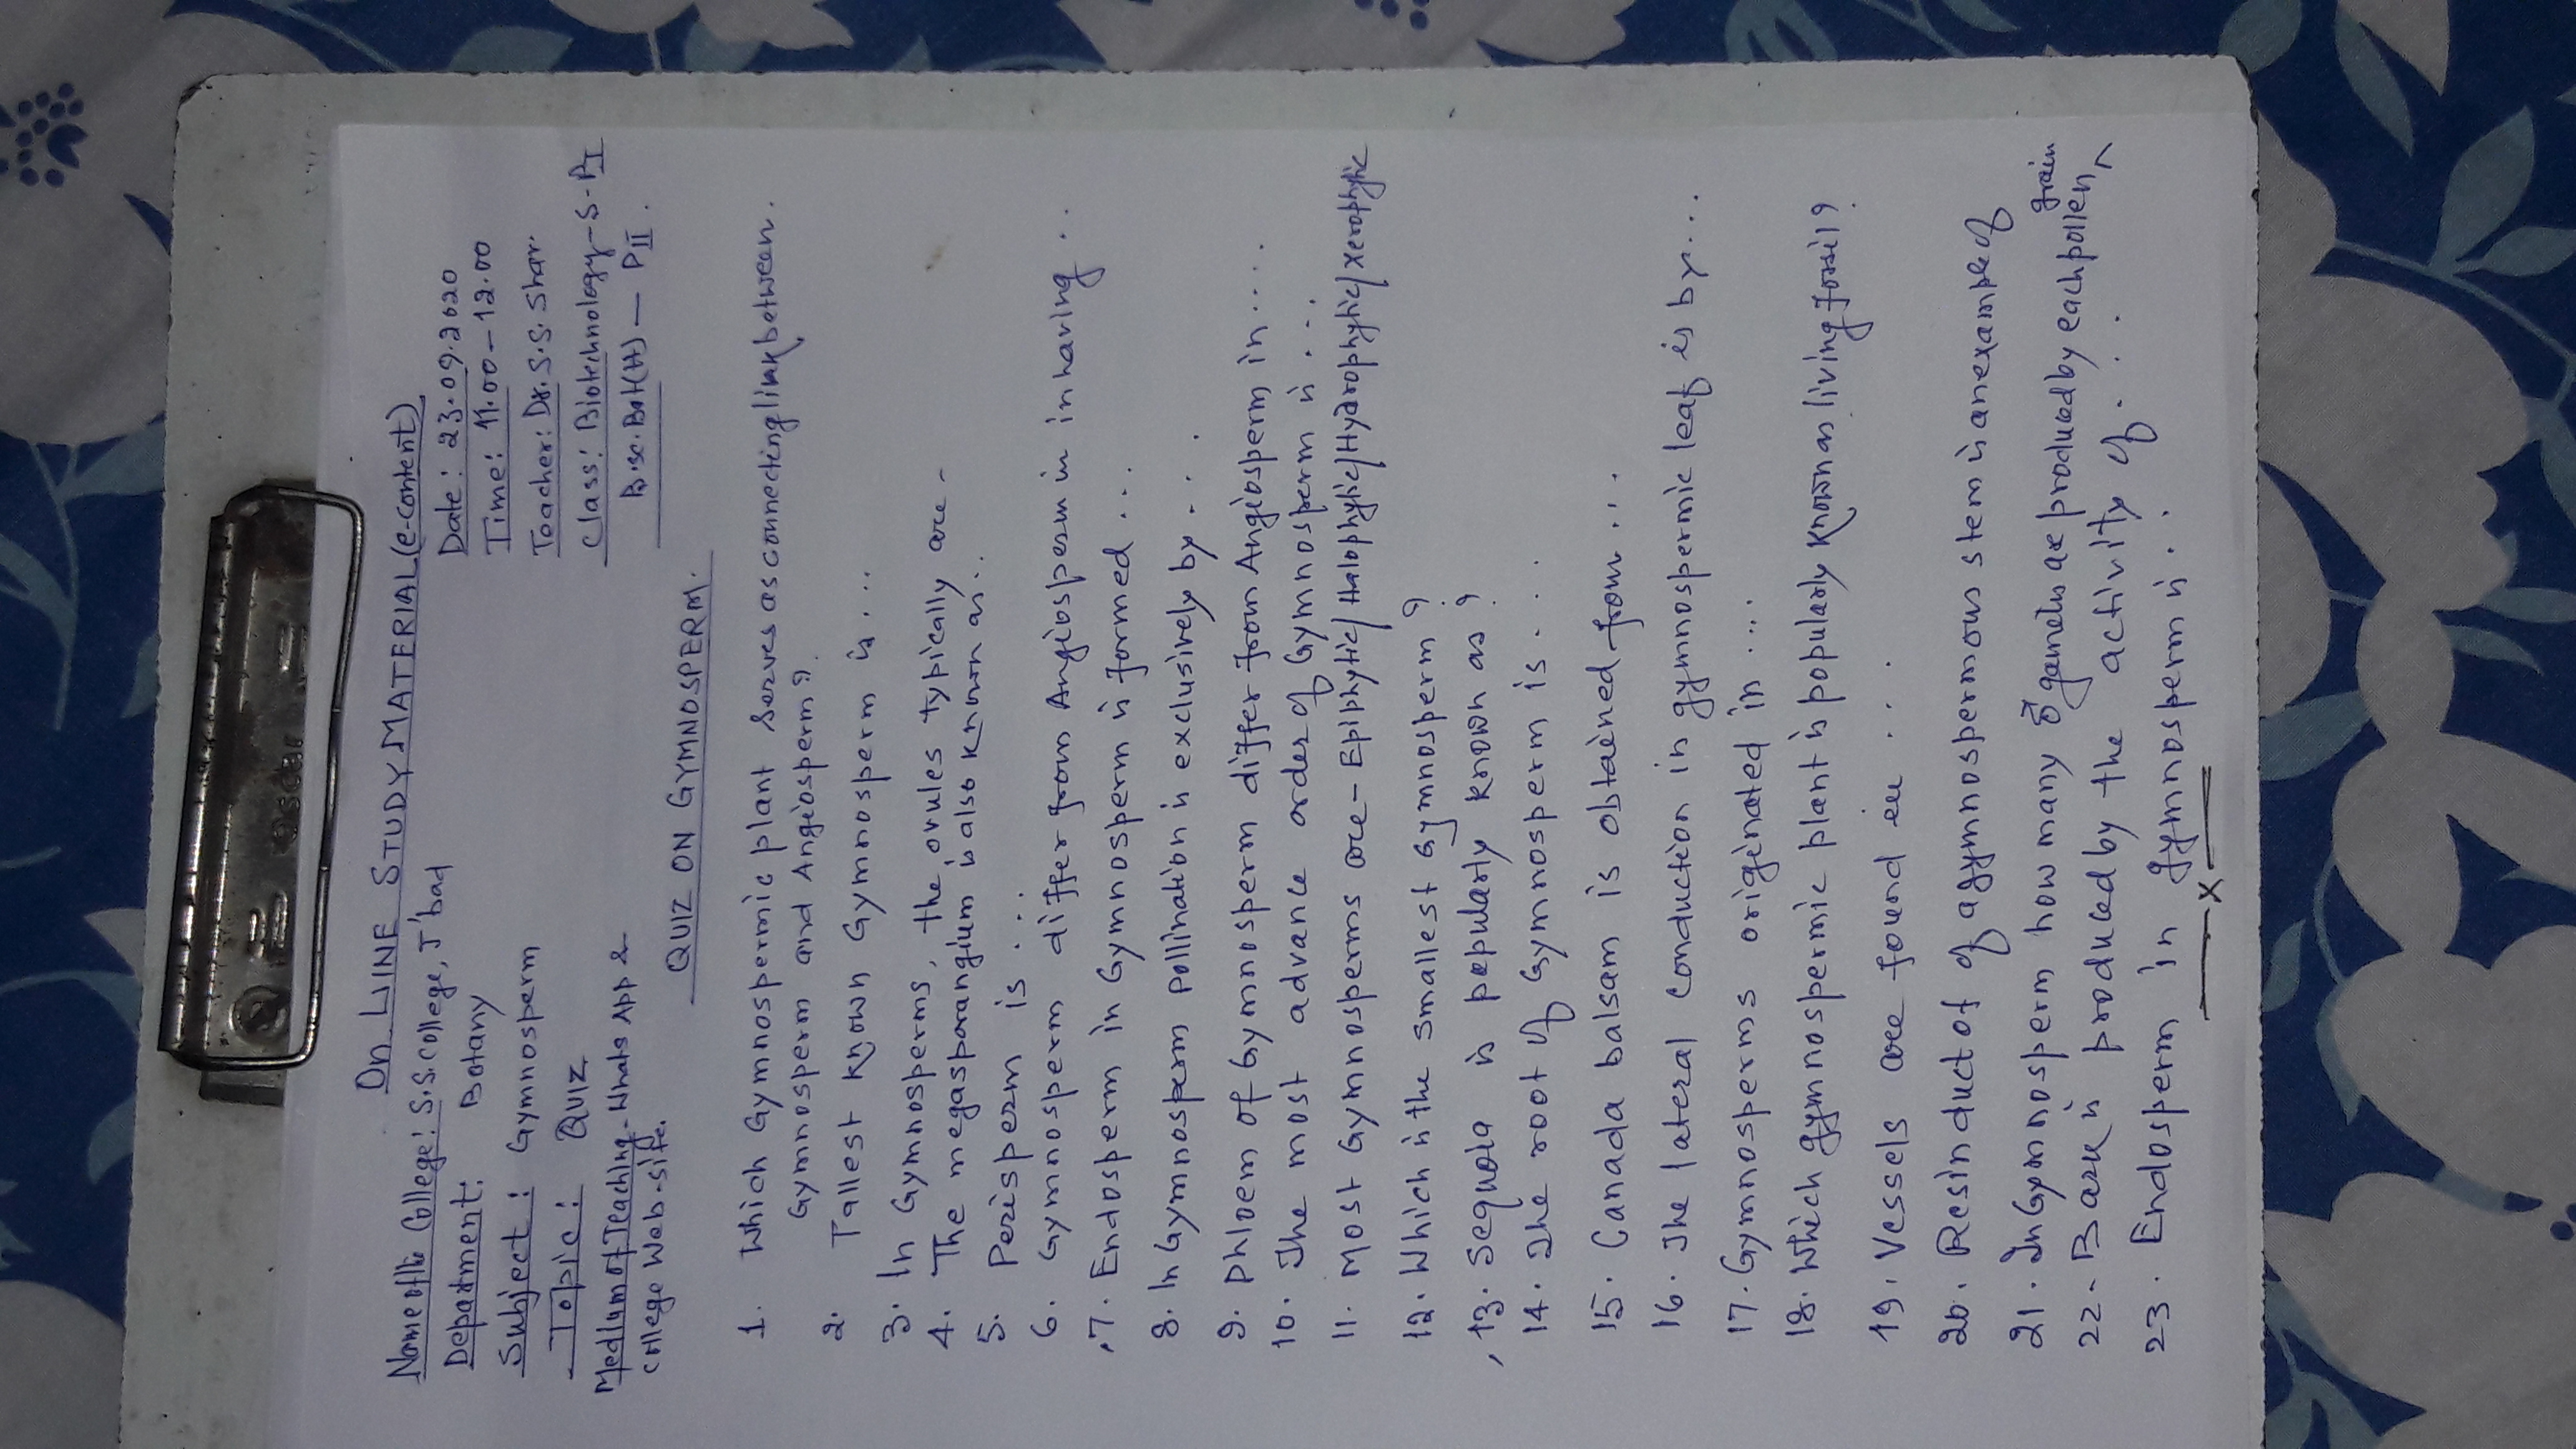 On LINE STUDY MATERIAL (e-content)
Name of the College: S.S. College, J'bad
Date: 23.09.2020
Department: Botany
Time: 11.00-12.00
Subject: Gymnosperm
Teacher: Dr. S.S. Shar.
Topic: QUIZ
Class: Biotechnology-S-PI
Medium of Teaching - Whats App &
B.sc. Bot(H) — PII.
College Web-site.
QUIZ ON GYMNOSPERM.
1. Which Gymnospermic plant serves as connecting link between
Gymnosperm and Angiosperm?
2. Tallest known Gymnosperm is...
3. In Gymnosperms, the ovules typically are -
4. The megasporangium is also known as..
5. Perisperm is ...
6. Gymnosperm differ from Angiosperm in having ..
7. Endosperm in Gymnosperm is formed...
8. In Gymnosperm pollination is exclusively by - . .
9. Phloem of Gymnosperm differ from Angiosperm in....
10. The most advance order of Gymnosperm is ...
11. Most Gymnosperms are - Epiphytic/Halophytic/Hydrophytic/xerophytic
12. Which is the smallest Gymnosperm?
13. Sequoia is popularly known as?
14. The root of Gymnosperm is....
15. Canada balsam is obtained from....
16. The lateral conduction in gymnospermic leaf is by...
17. Gymnosperms originated in ....
18. Which gymnospermic plant is popularly known as living fossil?
19. Vessels are found in ...
20. Resin duct of a gymnospermous stem is an example of
21. In Gymnosperm how many ♂ gametes are produced by each pollen grain
22. Bark is produced by the activity of. . .
23. Endosperm in gymnosperm is. .
—x—
oscar